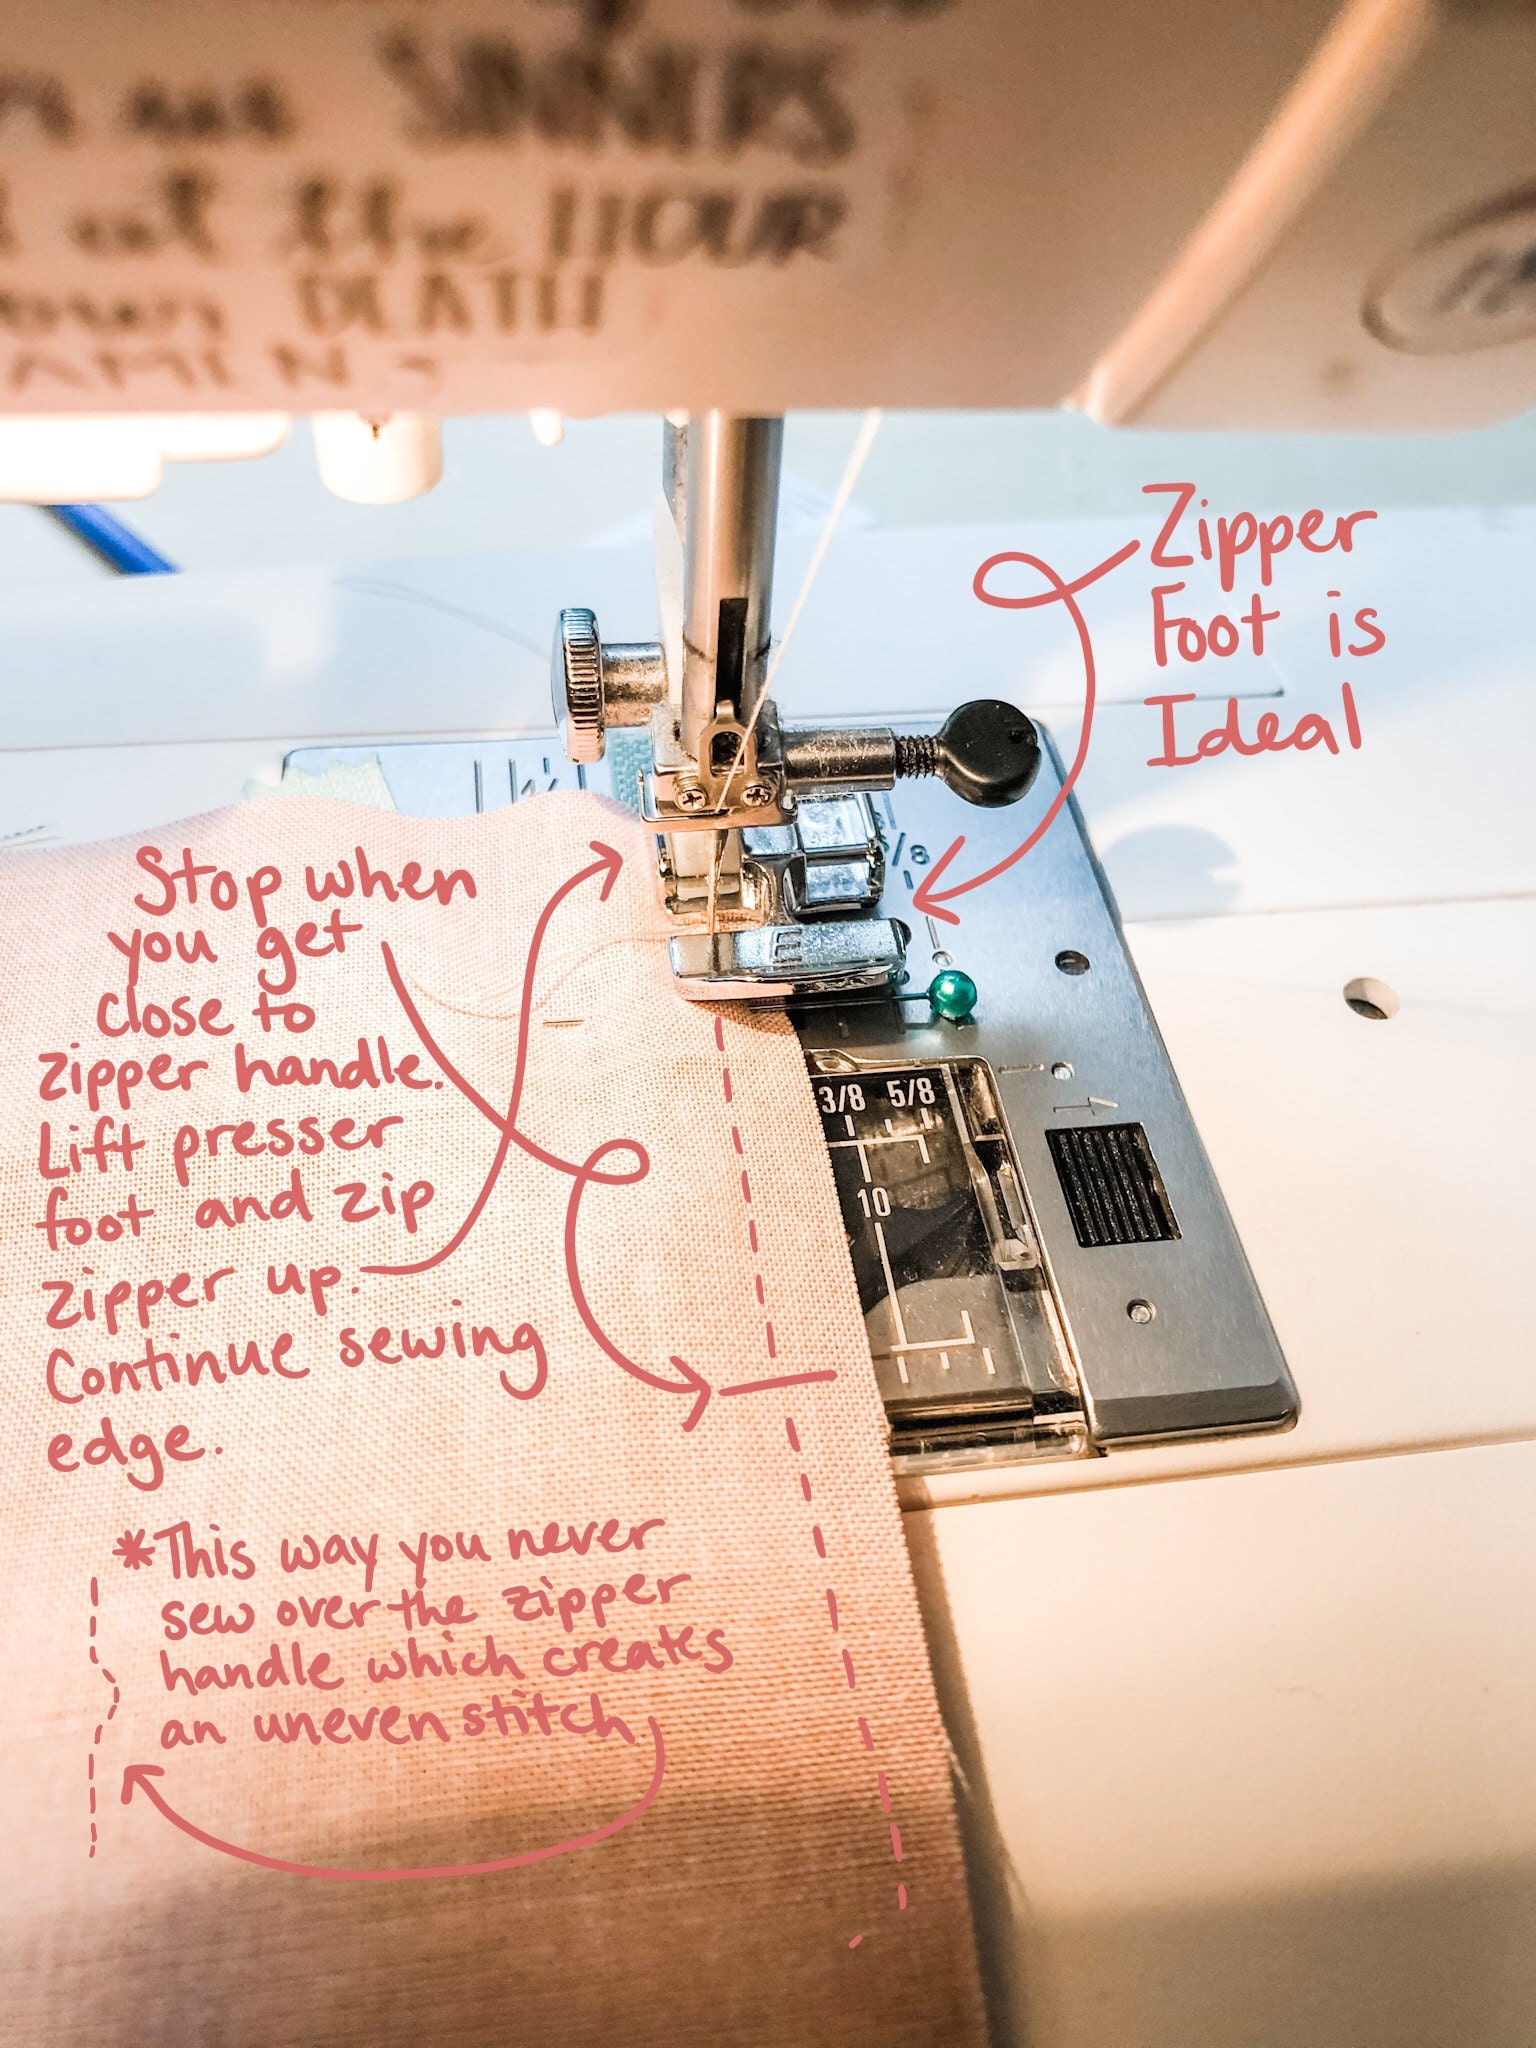 are SINNERS
at the HOUR
DEATH
AMEN.
Zipper
Foot is
Ideal
Stop when
you get
close to
zipper handle.
Lift presser
foot and zip
zipper up.
Continue sewing
edge.
*This way you never
sew over the zipper
handle which creates
an uneven stitch
E
/8
3/8 5/8
10